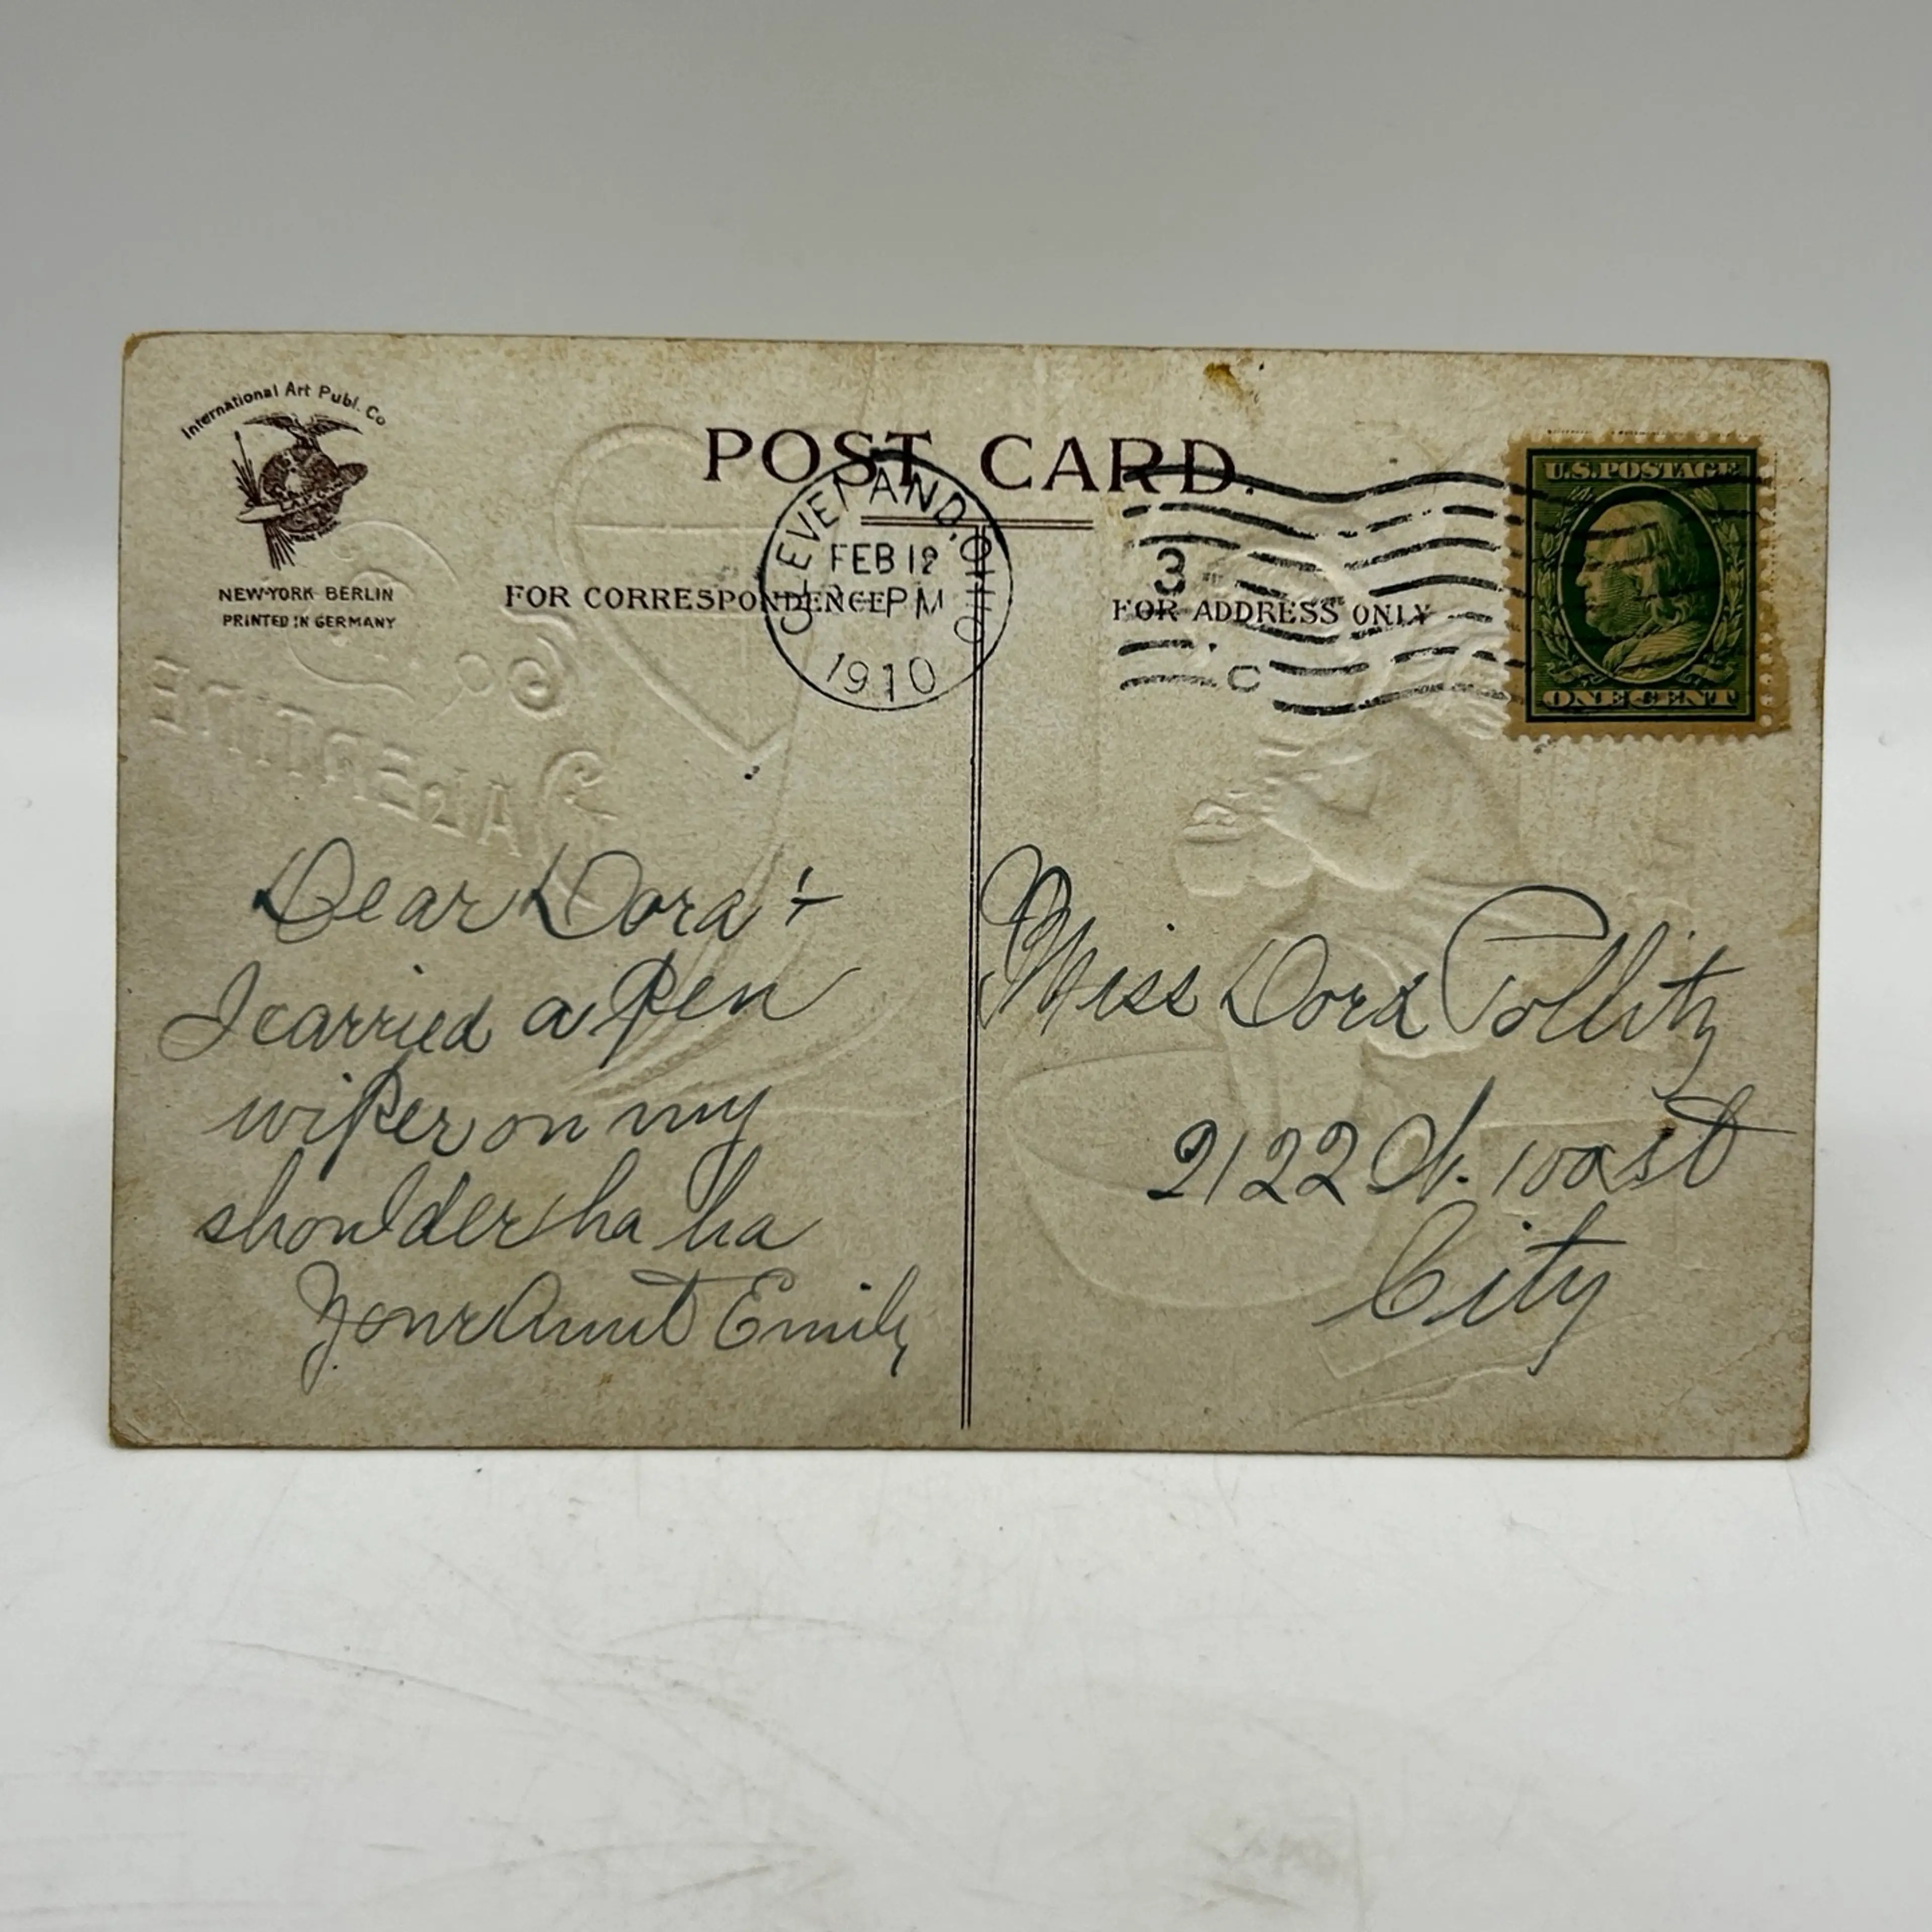 International Art Publ. Co
NEW-YORK BERLIN
PRINTED IN GERMANY
POST CARD.
FOR CORRESPONDENCE
FOR ADDRESS ONLY
CLEVELAND, OHIO
FEB 12
PM
1910
3
C
U.S. POSTAGE
ONE CENT
To
VALENTINE
Dear Dora +
I carried a Pen
wiper on my
shoulder ha ha
Your Aunt Emily
Miss Dora Pollitz
2122 St.
City